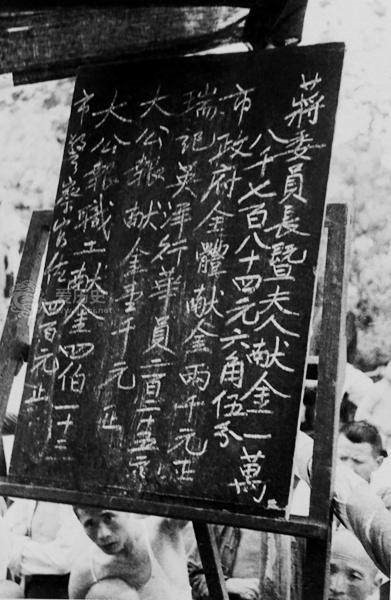 蔣委員長暨夫人献金一萬
八千七百八十四元六角伍分
市政府全體献金兩千元正
瑞記英洋行華員二百二十五元
大公報献金壹千元正
大公報職工献金四伯一十三
市 四百元正